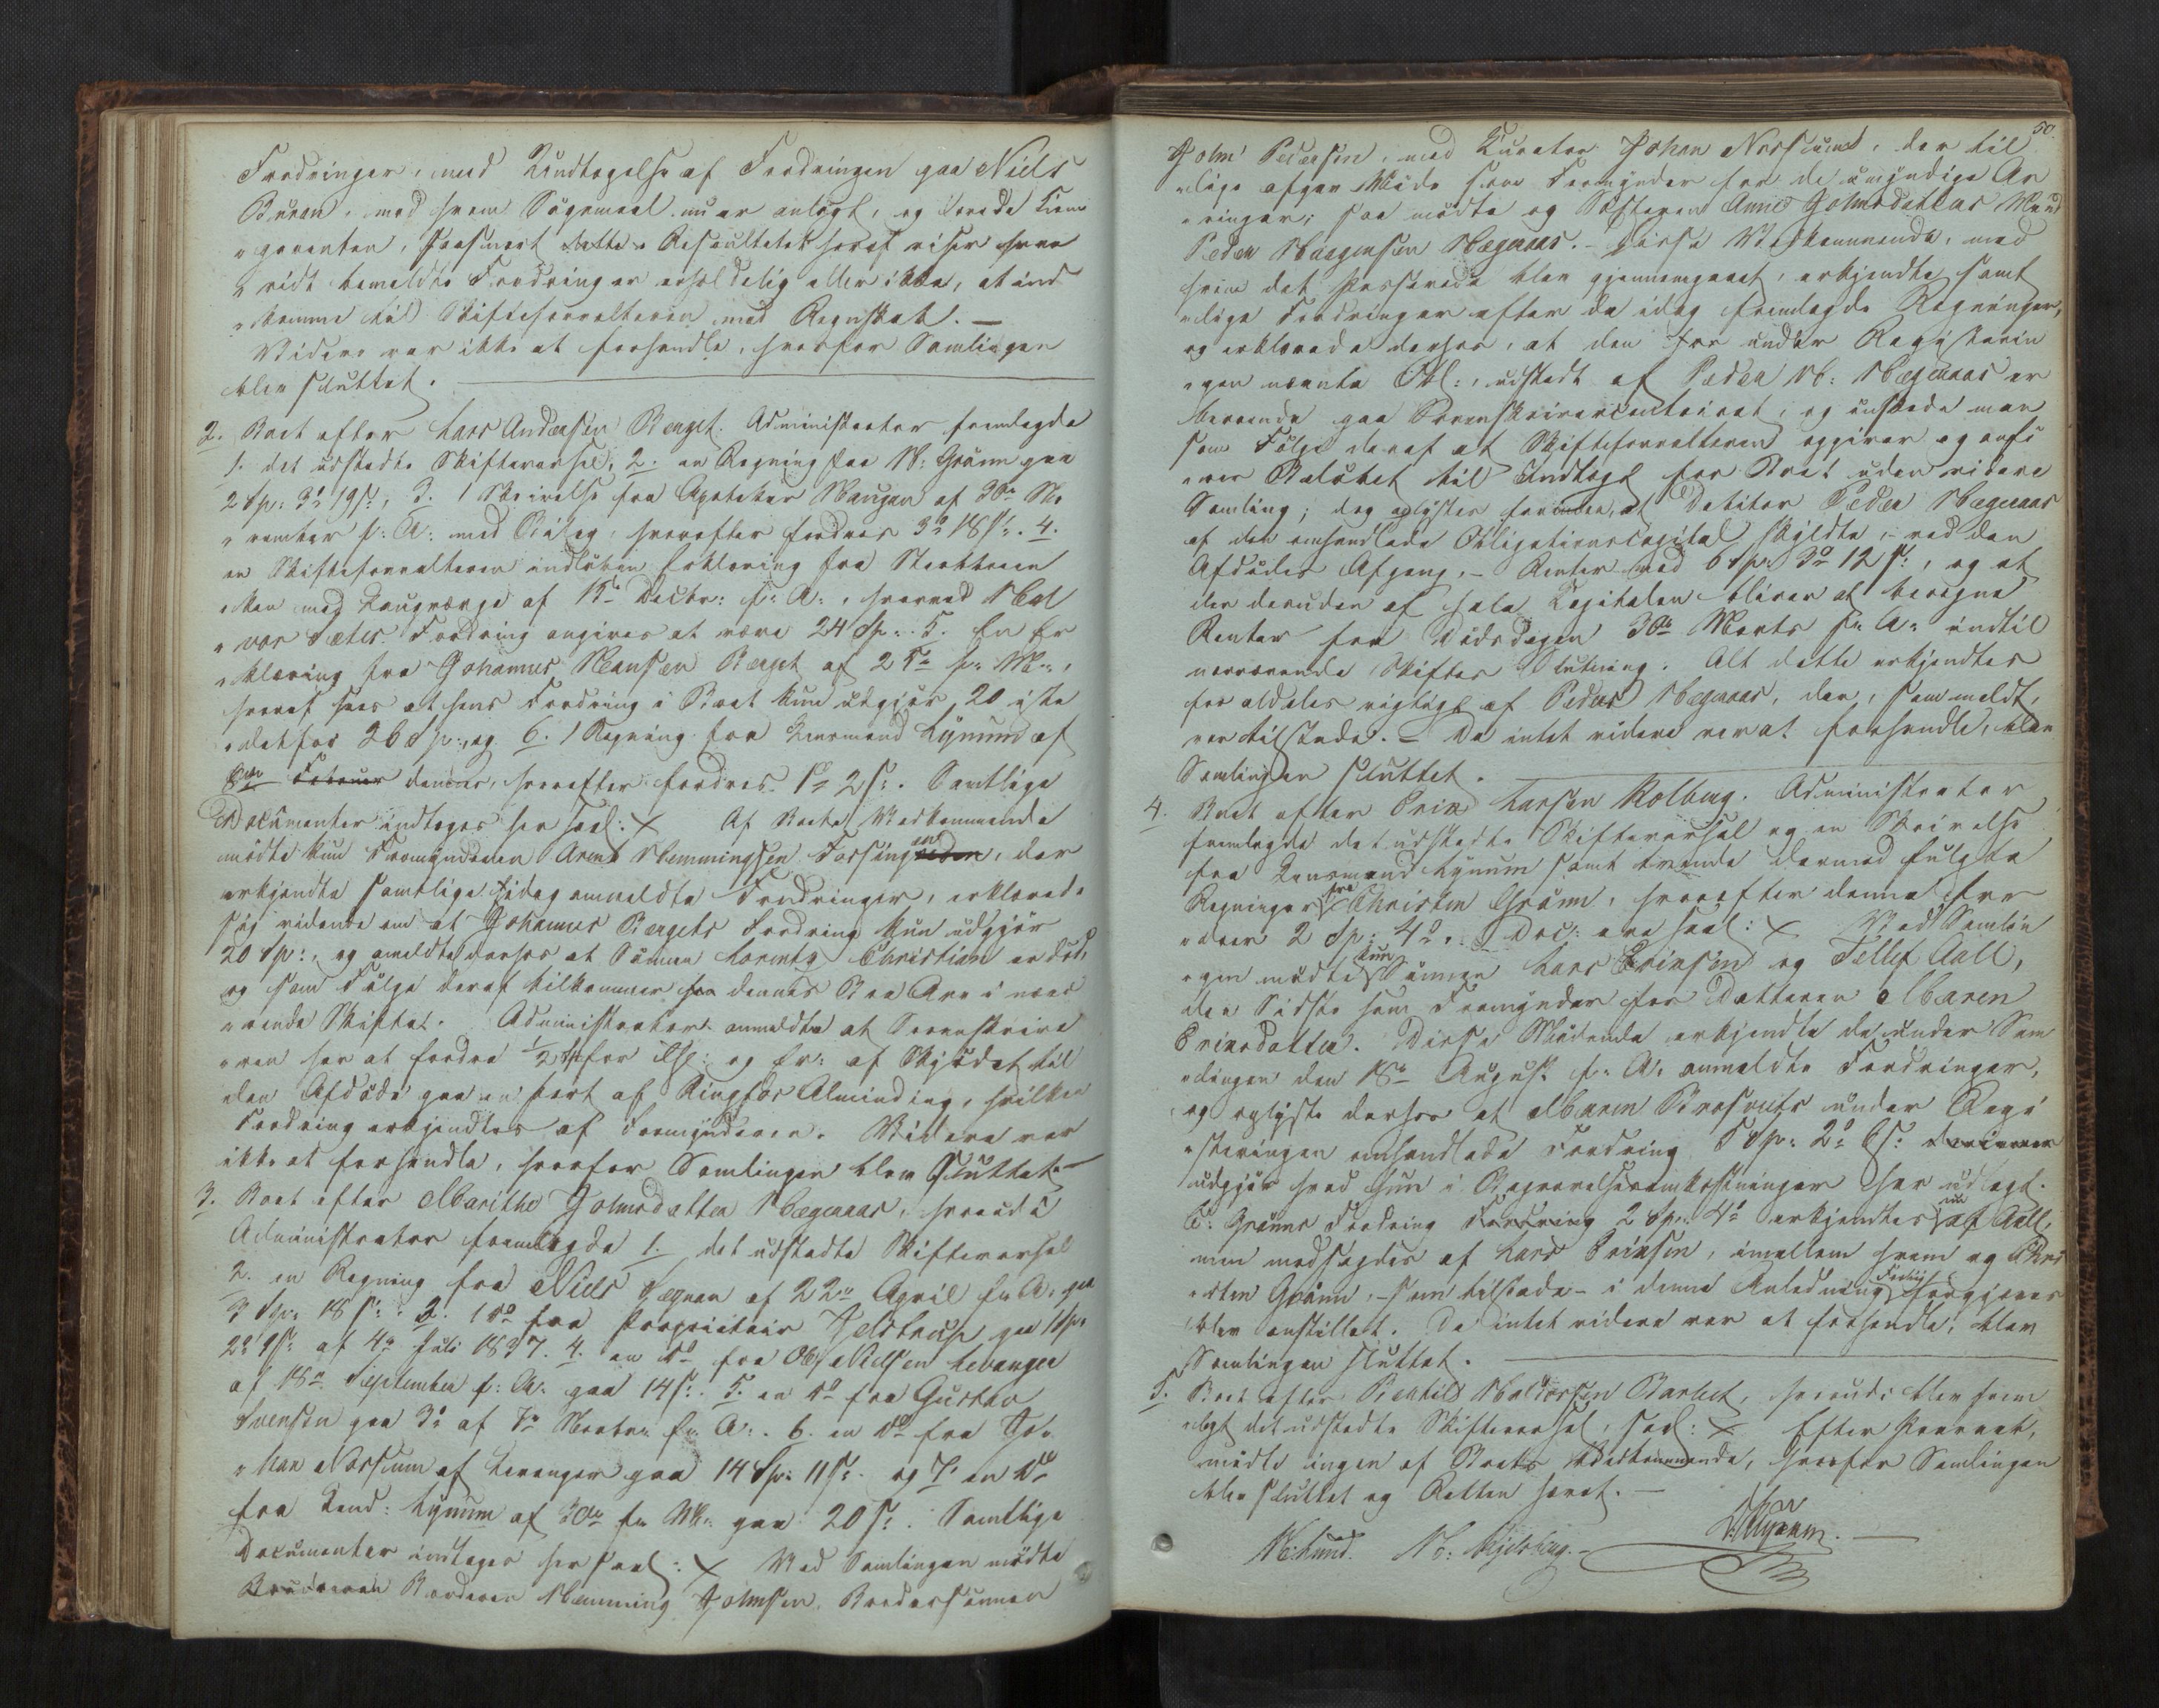 Fordringer, med Undtagelse af Fordringen paa Niels
Buran, mod hvem Søgsmaal nu er anlagt, og lovede Kom-
"parenten, saasnart Resultatet heraf viser hvor-
"vidt bemeldte Fordring er erholdelig eller ikke, at ind-
"komme til Skifteforvalteren med Regnskab. —
Videre var ikke at forhandle, hvorfor Samlingen
blev sluttet.
2. Boet efter Lars Andersen Berget. Administrator fremlagde
1. det udstedte Skiftevarsel, 2. en Regning fra N: Grønn paa
2 Sp: 3 19 s:, 3. 1 Skrivelse fra Apotheker Baugan af 30te No-
"vember f: A: med Bilag, hvorefter fordres 3 18 s:. 4.
en Skifteforvalteren indløben Erklæring fra
med Laugværge af 15de Decbr: f: A:, hvorved Hal-
"vor Sætes Fordring angives at være 24 Sp:. 5. En Er-
"klæring fra Johannes Hansen Berget af 25de f: M:,
hvoraf sees at hans Fordring i Boet kun udgjør 20 iste-
"detfor 26 Sp:, og 6. 1 Regning fra Lensmand Lynum af
Februar dennes, hvorefter fordres 1 2 s:. Samtlige
Documenter indtages her saal: X Af Boets Vedkommende
mødte kun Formynderen Arent Hemmingsen Forsingen, der
erkjendte samtlige idag anmeldte Fordringer, erklærede
sig vidende om at Johannes Bergets Fordring kun udgjør
20 Sp:, og anmeldte derhos at Sønnen Lorentz Christian er død,
og som Følge deraf tilkommer dennes Bo Arv i nær-
"værende Skifte. Administrator anmeldte at Sorenskrive-
"ren har at fordre ½ for og af Skjødet til
den Afdøde paa en Part af Ringfos Alminding, hvilken
Fordring erkjendtes af Formynderen. Videre var
ikke at forhandle, hvorfor Samlingen blev sluttet. —
3. Boet efter Marithe Johnsdatter Hægeaas, hvorudi
Administrator fremlagde 1. det udstedte Skiftevarsel
2. en Regning fra Niels af 22de April f: A: paa
3 Sp: 18 s:. 3. 1 do fra Proprietair Jelstrup paa 1 Sp:
2 9 s: af 4de Juli 1837. 4. en do fra Ole Nielsen Levanger
af 18de September f: A: paa 14 s:. 5. en do fra Gustav
Svensen paa 3 af 7de Novbr: f: A:. 6. en do fra Jo-
"han Norssum af Levanger paa 14 Sp: 11 s:. og 7. en do
fra Lensd: Lynum af 30te f: M: paa 20 s:. Samtlige
Documenter indtages her saal: X Ved Samlingen mødte
Broderen Hemming Johnsen, Brodersønnen
50.
John Pedersen, med Curator Johan Norssum, der til-
"lige afgav Møde som Formynder for de umyndige Ar-
"vinger; saa mødte og Søsteren Anne Johnsdatters Mand
Peder Haagensen Hægeaas. – Disse Vedkommende, med
hvem det Passerede blev gjennemgaaet, erkjendte samt-
"lige Fordringer efter de idag fremlagde Regninger,
og erklærede derhos, at den før under Registerin-
"gen nævnte Obl:, udstedt af Peder H: Hægeaas er
beroende paa Sorenskrivercontoiret, og ønskede man
som Følge deraf at Skifteforvalteren opgiver og anfø-
"rer Beløbet til Indtægt for Boet uden videre
Samling; dog oplystes forinden, at Debitor Peder Hægeaas
af den omhandlede Obligationscapital skyldte, – ved den
Afdødes Afgang, – Renter med 6 Sp: 3 12 s:, og at
der desuden af hele Capitalen bliver at beregne
Renter fra Dødsdagen 30te Marts f: A: indtil
nærværende Skiftes Slutning. Alt dette erkjendtes
for aldeles rigtigt af Peder Hægeaas, der, som meldt,
var tilstede. – Da intet videre var at forhandle, blev
Samlingen sluttet.
4. Boet efter Erik Larsen Kolberg. Administrator
fremlagde det udstedte Skiftevarsel og en Skrivelse
fra Lensmand Lynum samt tvende dermed fulgte
Regninger fra Christen Grønn, hvorefter denne for-
"drer 2 Sp: 4. Doc: ere saal: X Ved Samlin-
"gen mødte kun Sønnen Lars Eriksen og Tellef Aall,
den Sidste som Formynder for Datteren Maren
Eriksdatter. Disse Mødende erkjendte de under Sam-
"lingen den 18de August f: A: anmeldte Fordringer,
og oplyste derhos at Maren under Regi-
"steringen omhandlede Fordring 5 Sp: 2 6 s:
udgjør hvad hun i Begravelsesomkostninger har udlagt.
C: Grønns Fordring 2 Sp: 4 erkjendtes nu af Aall,
men modsagdes af Lars Eriksen, imellem hvem og Chri-
"sten Grønn, – som tilstede – i denne Anledning Forlig forgjæves
blev anstillet. Da intet videre var at forhandle, blev
Samlingen sluttet.
5. Boet efter Bentel Haldorsen Barlet, hvorudi blev frem-
"lagt det udstedte Skiftevarsel, saal: X Efter Paaraab,
mødte ingen af Boets Vedkommende, hvorfor Samlingen
blev sluttet og Retten hævet. —
N: Lund. N: Kjelsberg.